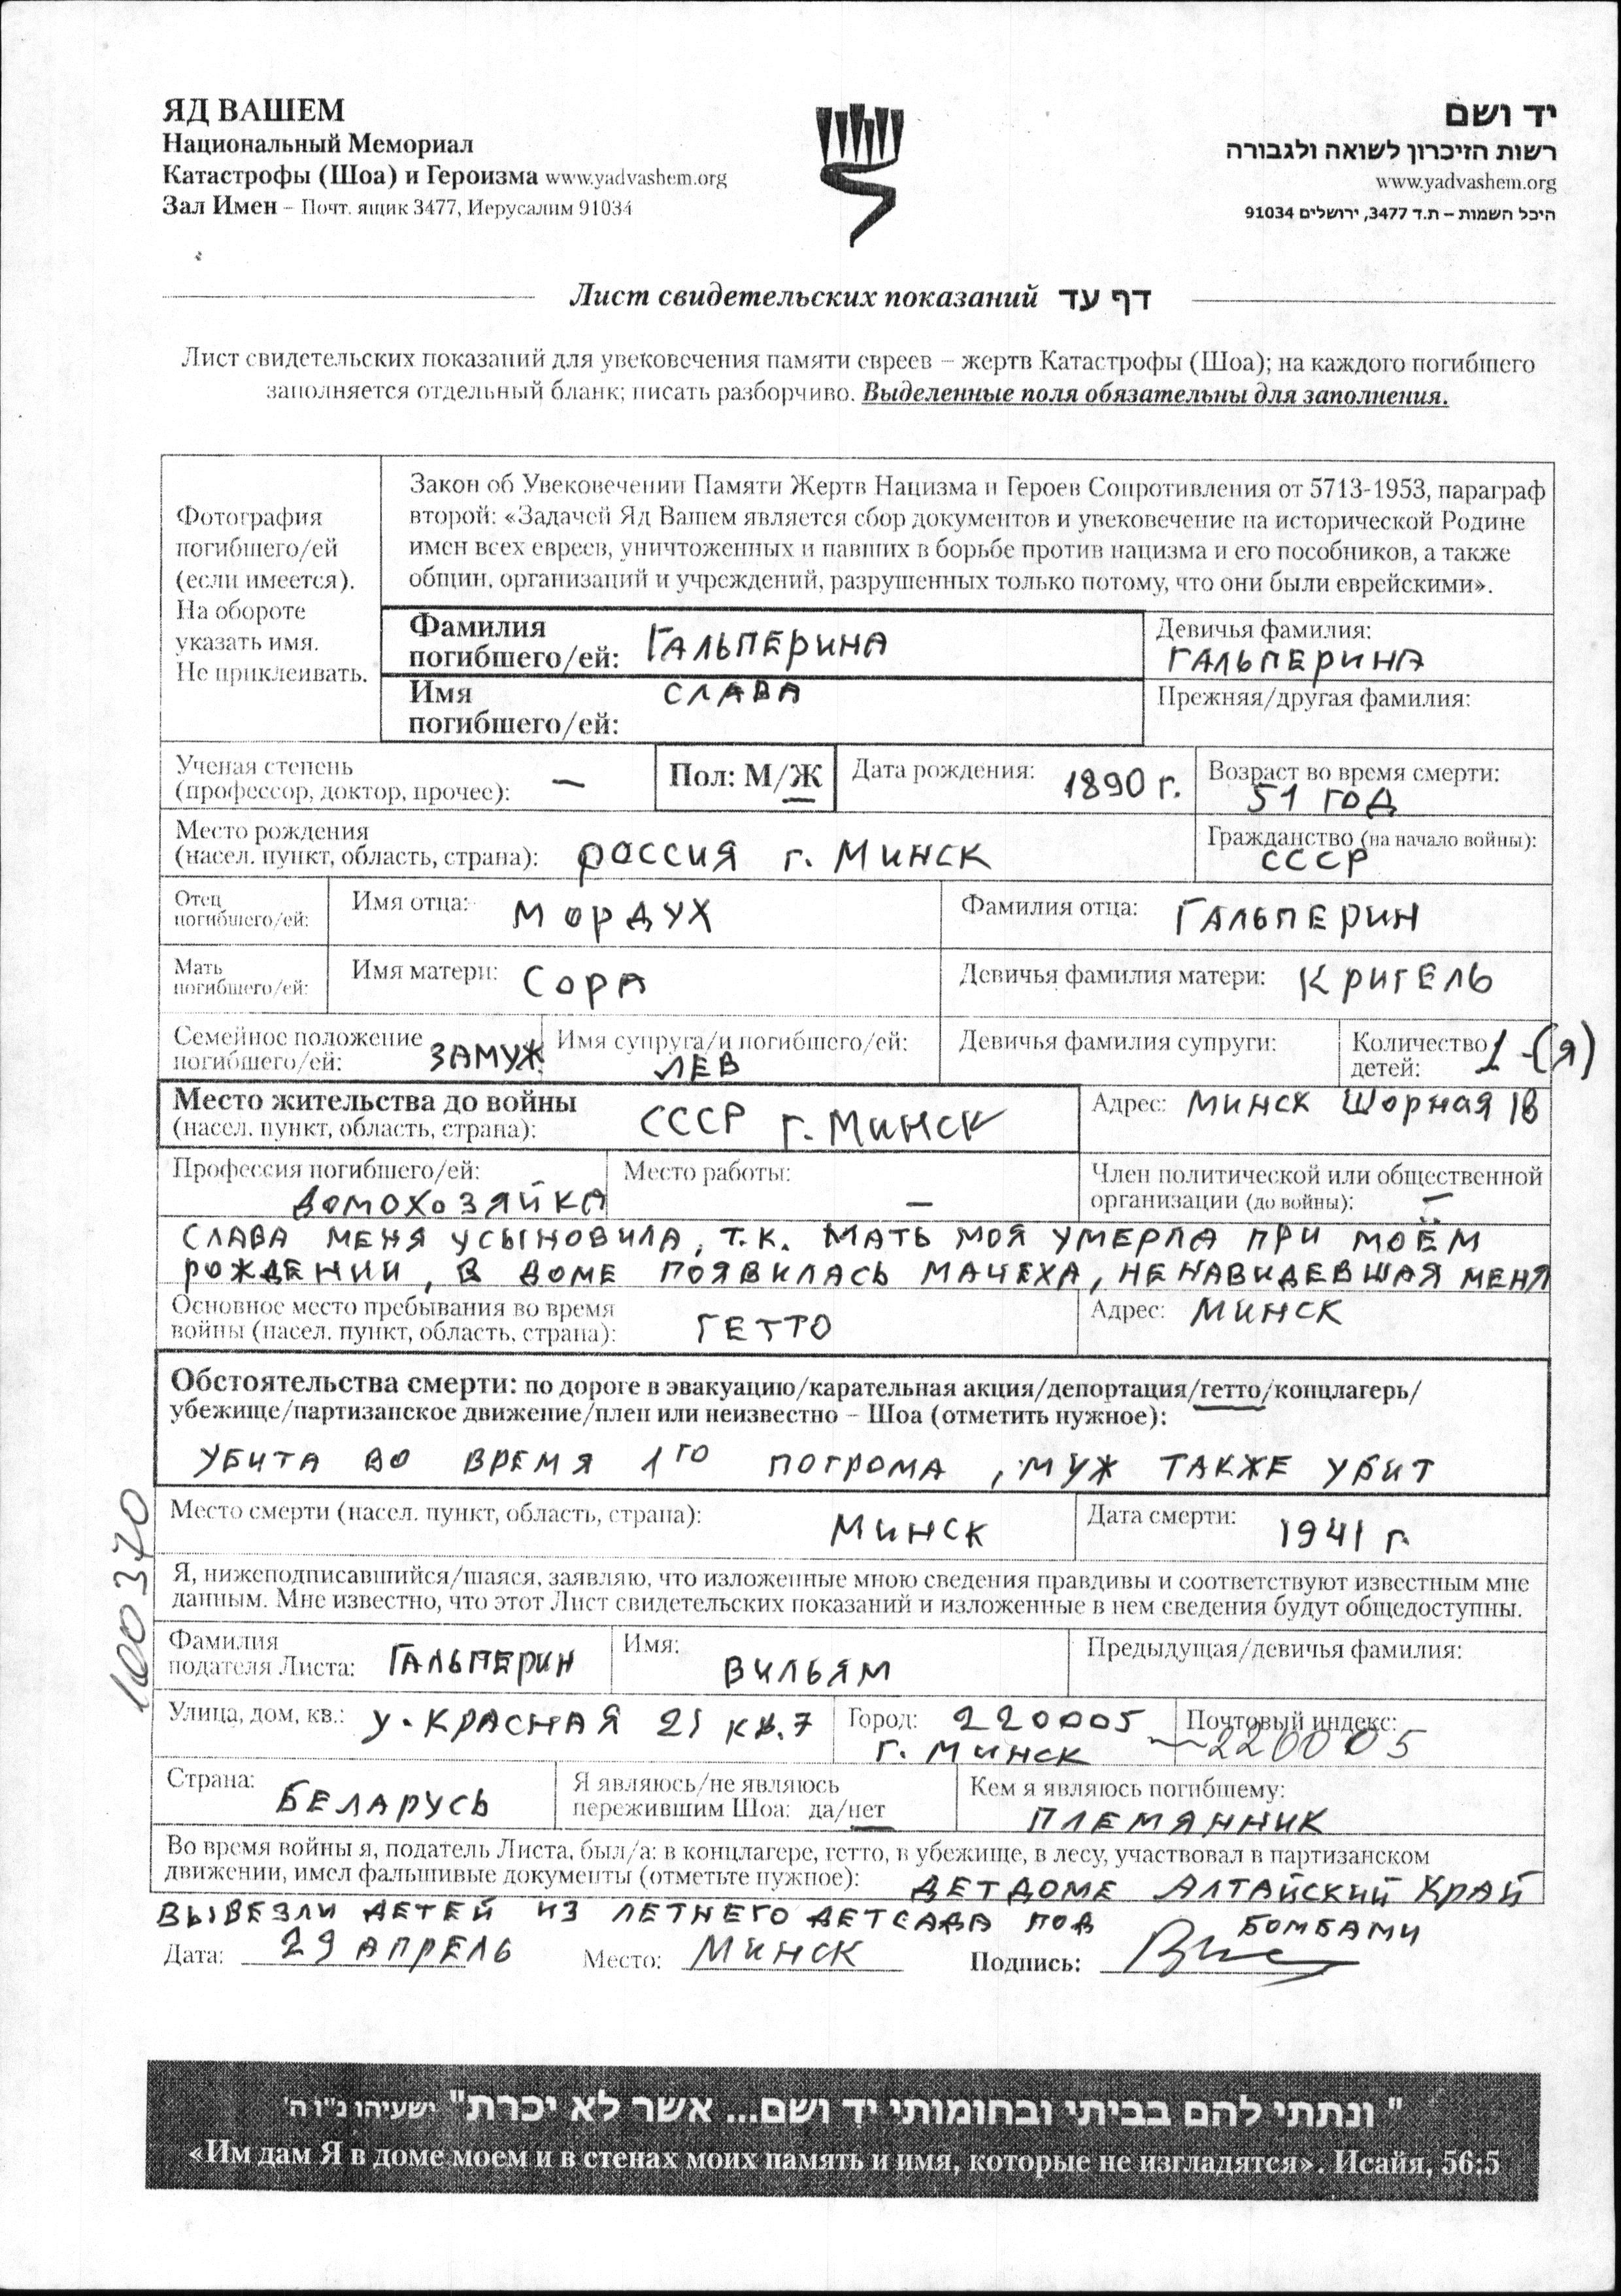 ЯД ВАШЕМ
Национальный Мемориал
Катастрофы (Шоа) и Героизма www.yadvashem.org
Зал Имен – Почт. ящик 3477, Иерусалим 91034
יד ושם
רשות הזיכרון לשואה ולגבורה
www.yadvashem.org
היכל השמות – ת.ד 3477, ירושלים 91034
Лист свидетельских показаний דף עד
Лист свидетельских показаний для увековечения памяти евреев – жертв Катастрофы (Шоа); на каждого погибшего
заполняется отдельный бланк; писать разборчиво. Выделенные поля обязательны для заполнения.
Фотография
погибшего/ей
(если имеется).
На обороте
указать имя.
Не приклеивать.
Закон об Увековечении Памяти Жертв Нацизма и Героев Сопротивления от 5713-1953, параграф
второй: «Задачей Яд Вашем является сбор документов и увековечение на исторической Родине
имен всех евреев, уничтоженных и павших в борьбе против нацизма и его пособников, а также
общин, организаций и учреждений, разрушенных только потому, что они были еврейскими».
Фамилия
погибшего/ей: ГАЛЬПЕРИНА
Девичья фамилия:
ГАЛЬПЕРИНА
Имя
погибшего/ей: СЛАВА
Прежняя/другая фамилия:
Ученая степень
(профессор, доктор, прочее): —
Пол: М/Ж
Дата рождения: 1890 г.
Возраст во время смерти:
51 ГОД
Место рождения
(насел. пункт, область, страна): РОССИЯ г. МИНСК
Гражданство (на начало войны):
СССР
Отец
погибшего/ей:
Имя отца: МОРДУХ
Фамилия отца: ГАЛЬПЕРИН
Мать
погибшего/ей:
Имя матери: СОРА
Девичья фамилия матери: КРИГЕЛЬ
Семейное положение
погибшего/ей: ЗАМУЖ.
Имя супруга/и погибшего/ей:
ЛЕВ
Девичья фамилия супруги:
Количество
детей: 1 -(Я)
Место жительства до войны
(насел. пункт, область, страна): СССР г. МИНСК
Адрес: МИНСК Шорная 1В
Профессия погибшего/ей:
ДОМОХОЗЯЙКА
Место работы:
—
Член политической или общественной
организации (до войны): —
СЛАВА МЕНЯ УСЫНОВИЛА, Т.К. МАТЬ МОЯ УМЕРЛА ПРИ МОЁМ
РОЖДЕНИИ, В ДОМЕ ПОЯВИЛАСЬ МАЧЕХА, НЕНАВИДЕВШАЯ МЕНЯ
Основное место пребывания во время
войны (насел. пункт, область, страна): ГЕТТО
Адрес: МИНСК
Обстоятельства смерти: по дороге в эвакуацию/карательная акция/депортация/гетто/концлагерь/
убежище/партизанское движение/плен или неизвестно – Шоа (отметить нужное):
УБИТА ВО ВРЕМЯ 1ГО ПОГРОМА, МУЖ ТАКЖЕ УБИТ
Место смерти (насел. пункт, область, страна): МИНСК
Дата смерти: 1941 г.
Я, нижеподписавшийся/шаяся, заявляю, что изложенные мною сведения правдивы и соответствуют известным мне
данным. Мне известно, что этот Лист свидетельских показаний и изложенные в нем сведения будут общедоступны.
100370
Фамилия
подателя Листа: ГАЛЬПЕРИН
Имя:
ВИЛЬЯМ
Предыдущая/девичья фамилия:
Улица, дом, кв.: У. КРАСНАЯ 21 КВ.7
Город: 220005
г. МИНСК
Почтовый индекс:
220005
Страна: БЕЛАРУСЬ
Я являюсь/не являюсь
пережившим Шоа: да/нет
Кем я являюсь погибшему:
ПЛЕМЯННИК
Во время войны я, податель Листа, был/а: в концлагере, гетто, в убежище, в лесу, участвовал в партизанском
движении, имел фальшивые документы (отметьте нужное): ДЕТДОМЕ АЛТАЙСКИЙ КРАЙ
ВЫВЕЗЛИ ДЕТЕЙ ИЗ ЛЕТНЕГО ДЕТСАДА ПОД БОМБАМИ
Дата: 29 АПРЕЛЬ Место: МИНСК Подпись:
" ונתתי להם בביתי ובחומותי יד ושם... אשר לא יכרת" ישעיהו נ"ו ה'
«Им дам Я в доме моем и в стенах моих память и имя, которые не изгладятся». Исайя, 56:5